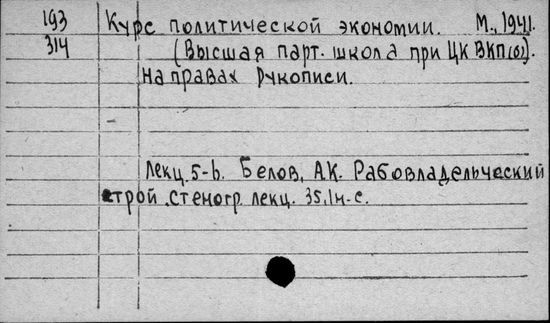 193 Курс политической экономии. М., 1941.
314 (Высшая парт. школа при ЦК ВКП(б)).
на правах рукописи.
Лекц. 5-6. Белов, А.К. Рабовладельческий
строй. Стеногр. лекц. 35, 1н-с.